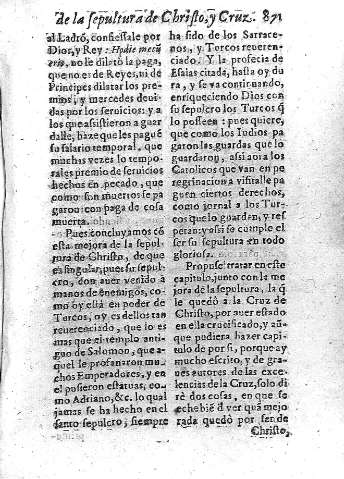 de la sepultura de Christo, y Cruz. 871
al Ladrõ, confiessale por
Dios, y Rey: Hodie mecũ
eris, no le dilatò la paga,
que no es de Reyes, ni de
Principes dilatar los pre-
mios, y mercedes devi-
das por los seruicios: y a
los que assistieron a guar
dalle, haze que les pagué
su salario temporal, que
muchas vezes lo tempo-
rales premio de seruicios
hechos en pecado, que
como son muertos se pa
garon con paga de cosa
muerta.
Pues concluyamos cõ
esta mejora de la sepul
tura de Christo, de que
es singular, pues su sepul
cro, don auer venido a
manos de enemigos, co
mo oy está en poder de
Turcos, no y es dellos tan
reuerenciado, que lo es
mas que el templo anti
guo de Salomon, que a-
quel le profanaron mu-
chos Emperadores, y en
el pusieron estatuas, co-
mo Adriano, &c. lo qual
jamas se ha hecho en el
santo sepulcro; siempre
ha sido de los Sarrace-
nos, y Torcos reueren-
ciado. Y la profecia de
Esaias citada, hasta oy du
ra, y se va continuando,
enriqueciendo Dios con
su sepulcro los Turcos q̃
lo posseen: pues quiere,
que como los Iudios pa
garon las guardas que lo
guardaron, assi aora los
Catolicos que van en pe
regrinacion a visitalle pa
guen ciertos derechos,
como jornal a los Tur-
cos que lo guarden, y res
peran: y assi se cumple el
ser su sepultura en todo
gloriosa.
Propuse tratar en este
capitulo, junto con la me
jora de la sepultura, la q̃
le quedò a la Cruz de
Christo, por auer estado
en ella crucificado, y aũ-
que pudiera hazer capi-
tulo de por si, porque ay
mucho escrito, y de gra-
ues autores de las exce-
lencias de la Cruz, solo di
rè dos cosas, en que se
eche bië d ver quã mejo
rada quedó por ser de
Christo,